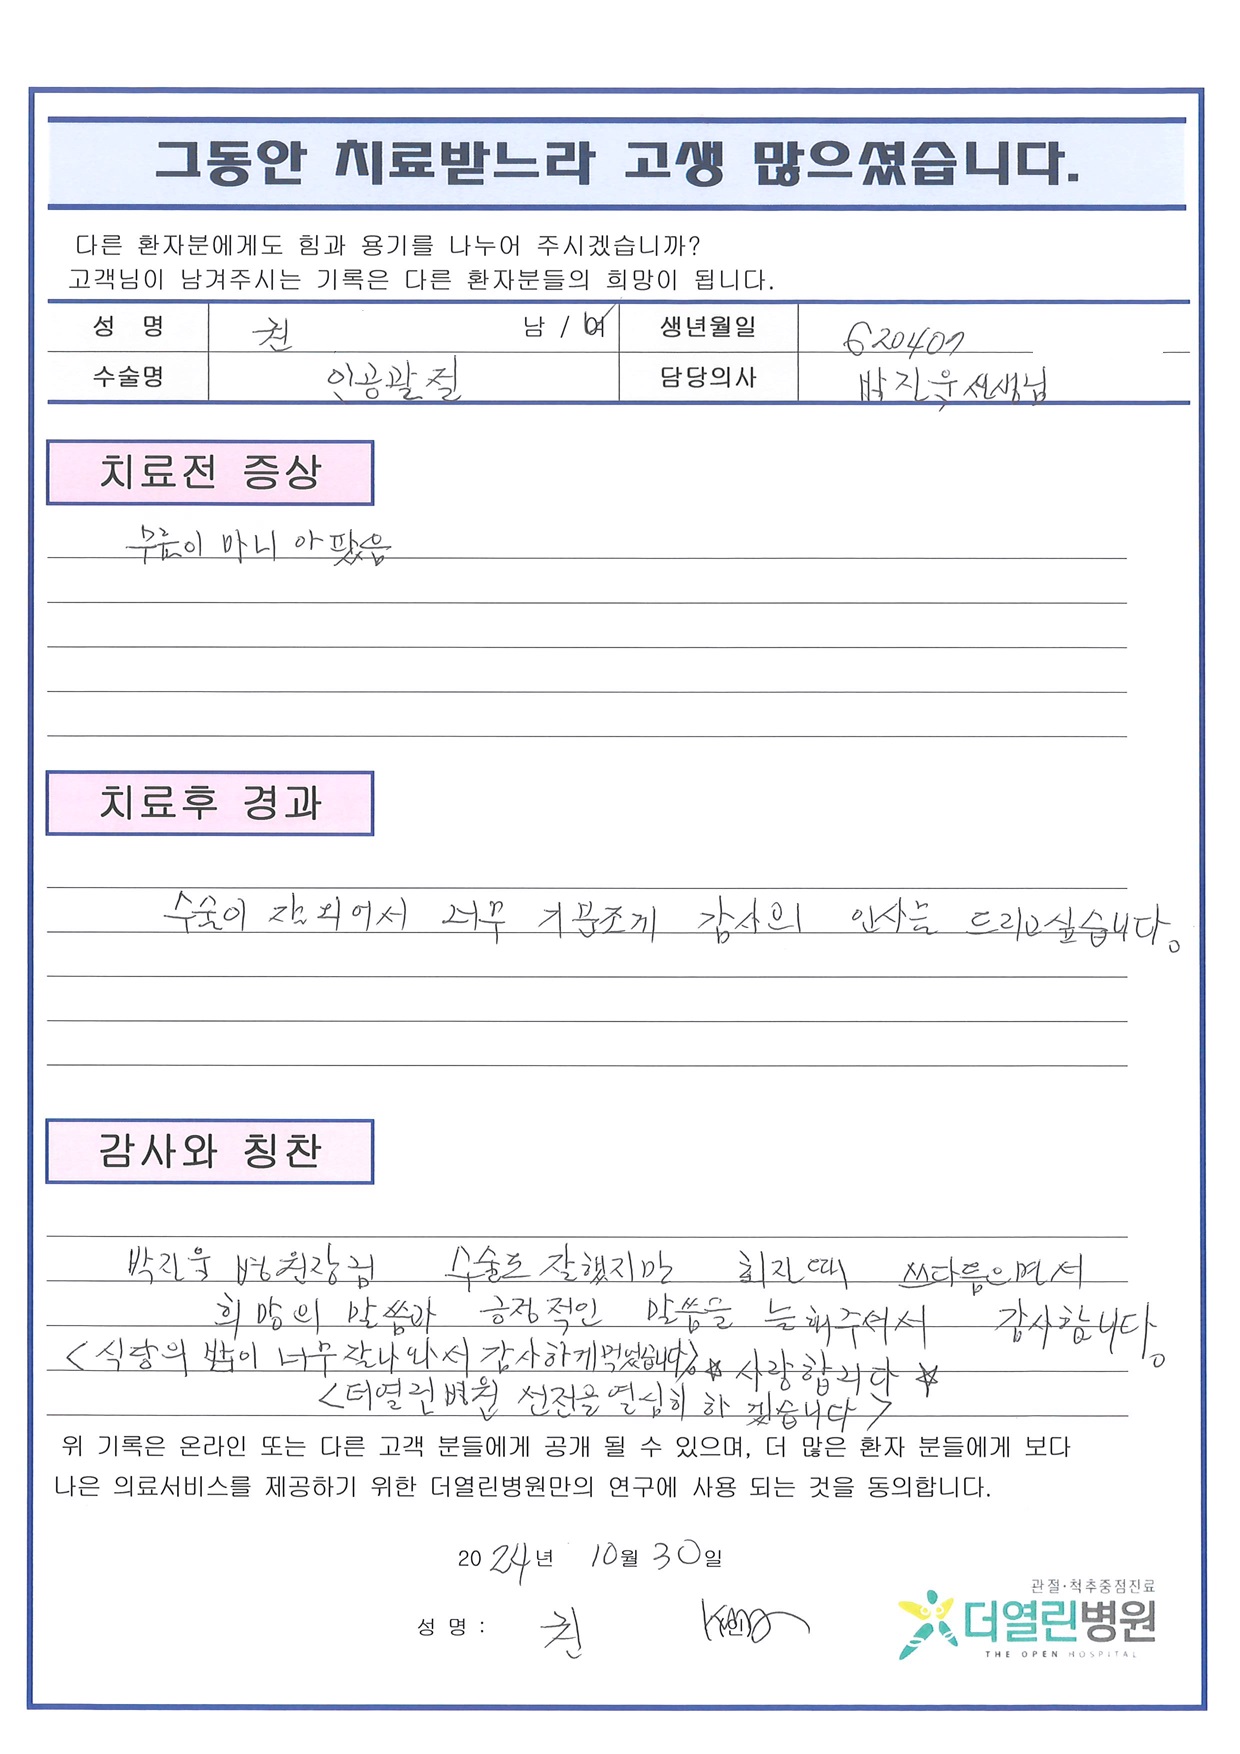 그동안 치료받느라 고생 많으셨습니다.
다른 환자분에게도 힘과 용기를 나누어 주시겠습니까?
고객님이 남겨주시는 기록은 다른 환자분들의 희망이 됩니다.
성 명 권 남 / 여 생년월일 620407
수술명 인공괄절 담당의사 박진욱선생님
치료전 증상
무릎이 마니 아팠음
치료후 경과
수술이 잘 되어서 너무 기분조게 감사의 인사를 드리고싶습니다。
감사와 칭찬
박진욱 병원장님 수술도 잘했지만 회진때 쓰다듬으면서
희망의 말씀과 긍정적인 말씀을 늘해주셔서 감사합니다。
<식당의 밥이 너무잘나와서 감사하게먹었습니다> ☆사랑합니다☆
<더열린병원 선전을열심히하겠습니다>
위 기록은 온라인 또는 다른 고객 분들에게 공개 될 수 있으며, 더 많은 환자 분들에게 보다
나은 의료서비스를 제공하기 위한 더열린병원만의 연구에 사용 되는 것을 동의합니다.
2024년 10월 30일
성 명 : 권
관절·척추중점진료
더열린병원
THE OPEN HOSPITAL